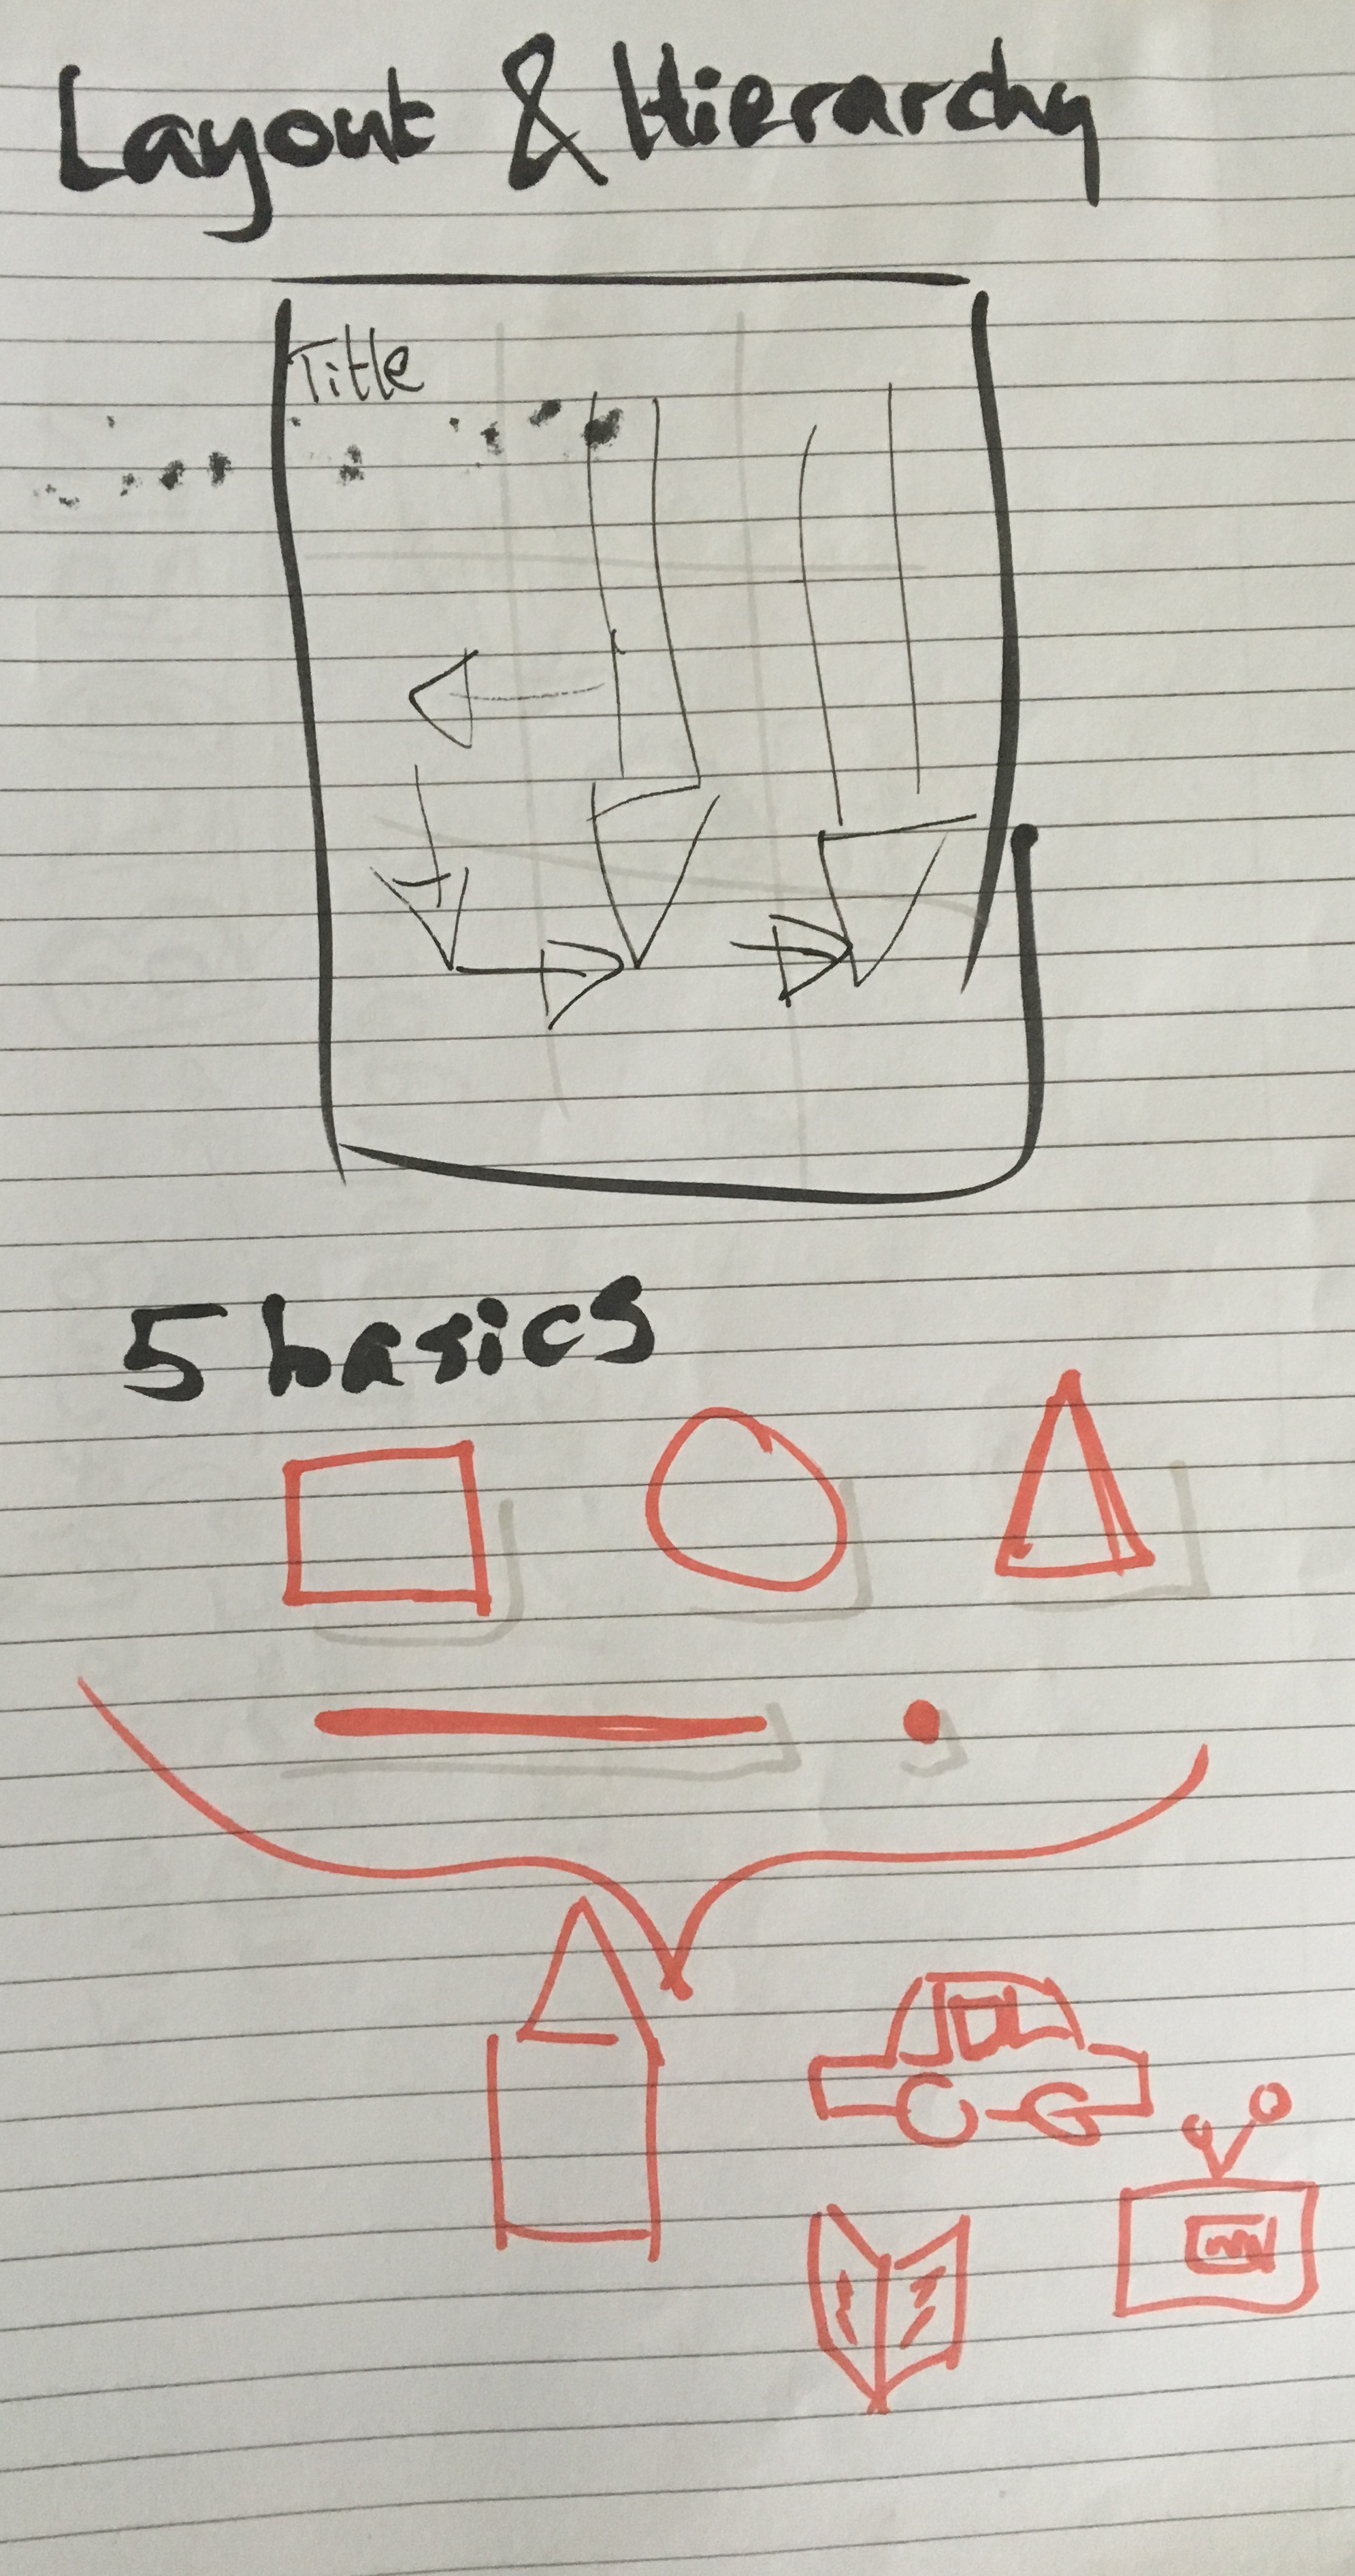 Layout & Hierarchy
Title
5 basics